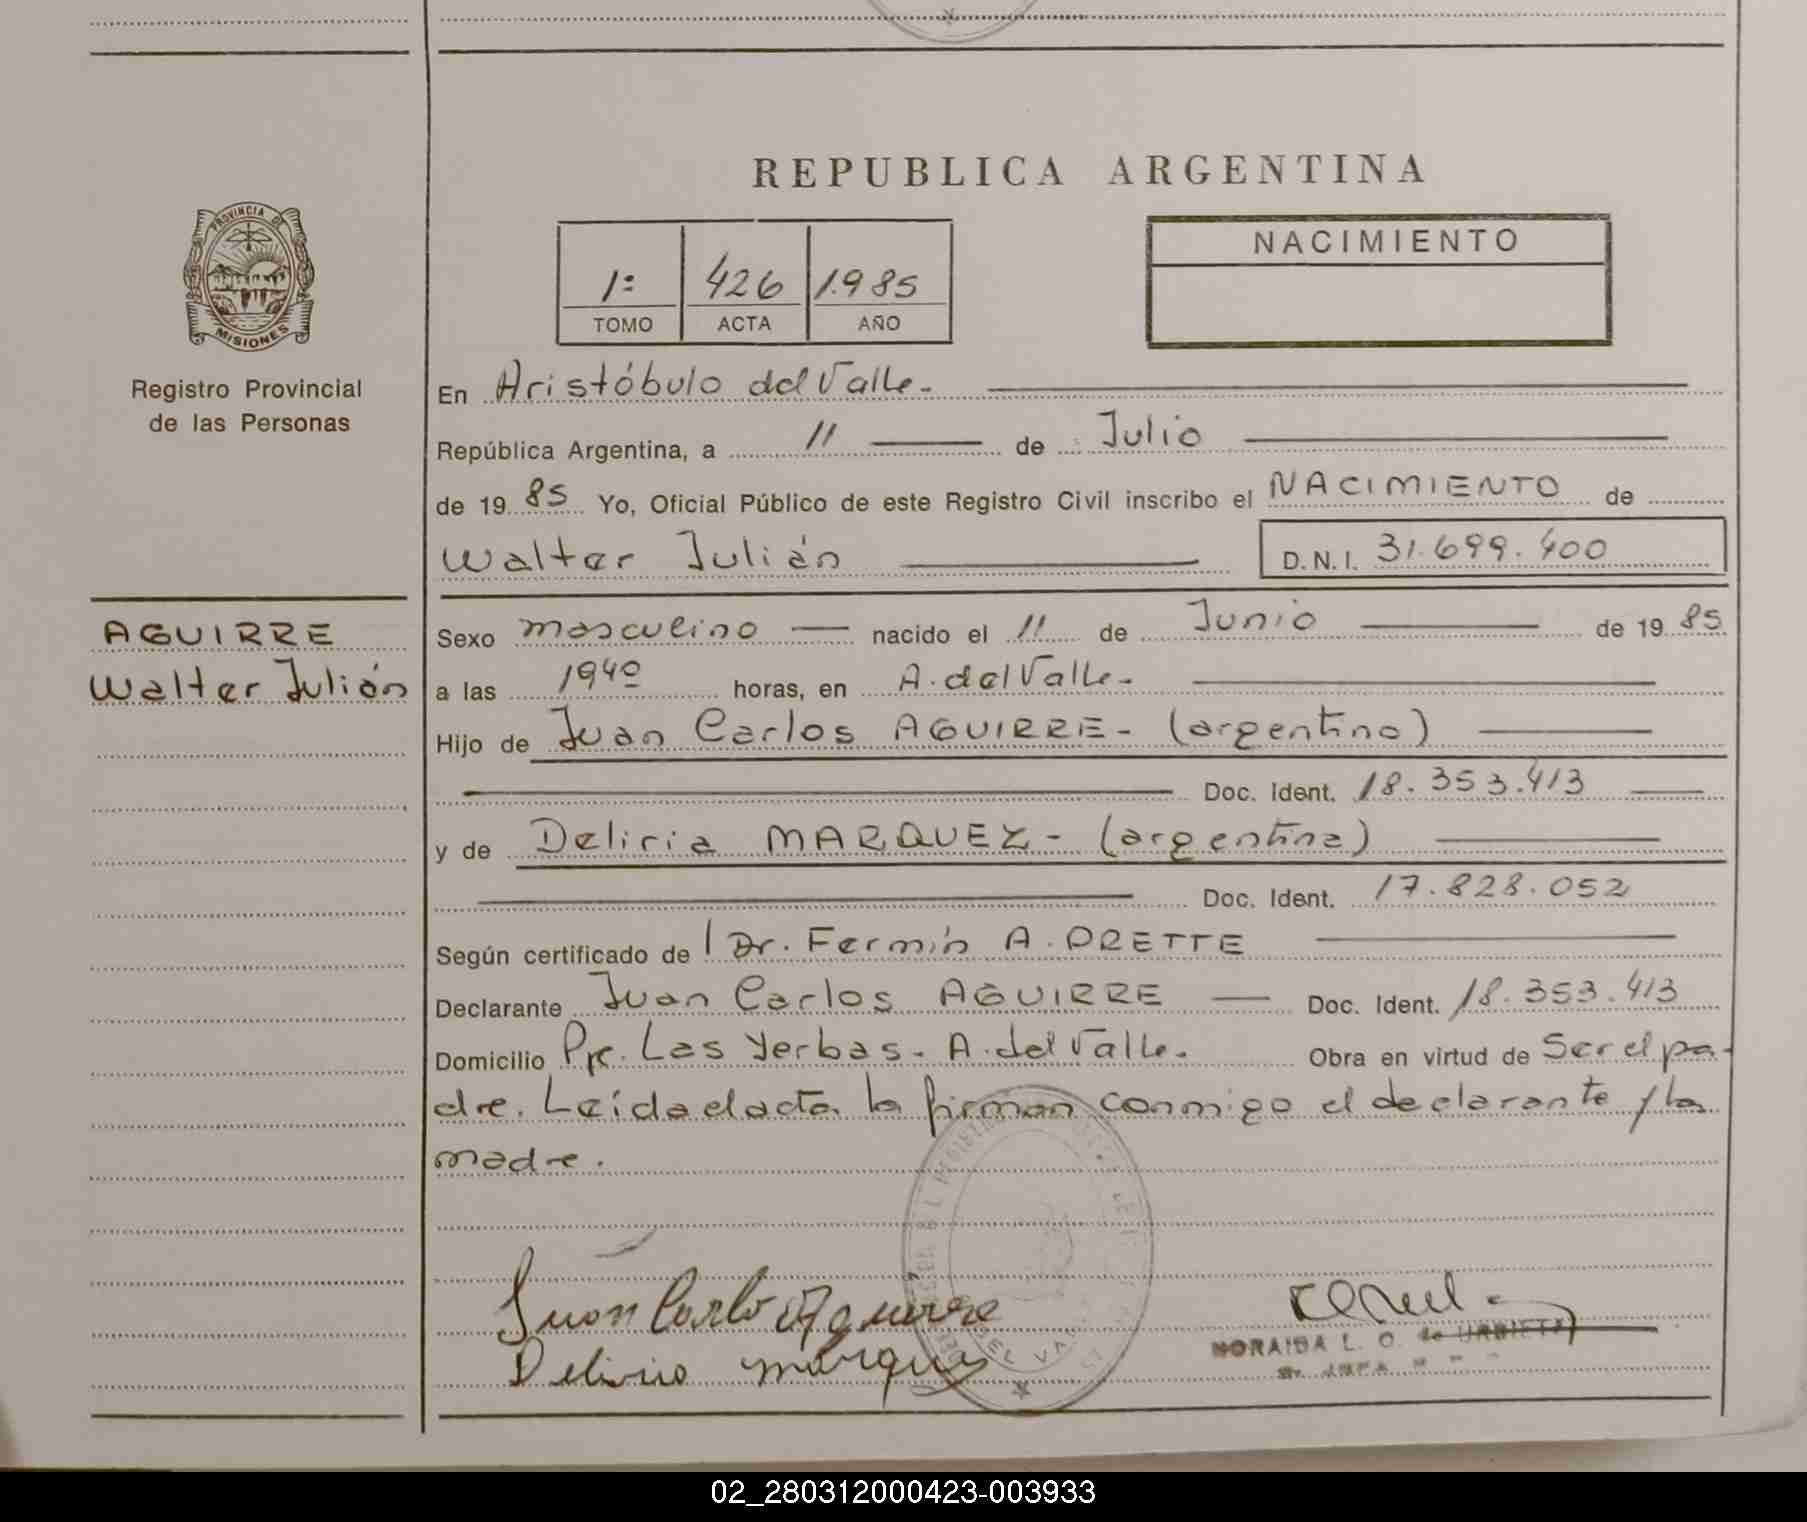 REPUBLICA ARGENTINA
PROVINCIA DE MISIONES
Registro Provincial
de las Personas
1º 426 1.985
TOMO ACTA AÑO
NACIMIENTO
En Aristóbulo del Valle.
República Argentina, a 11 de Julio
de 19 85 Yo, Oficial Público de este Registro Civil inscribo el NACIMIENTO de
Walter Julián D.N.I. 31.699.400
AGUIRRE
Walter Julián
Sexo masculino nacido el 11 de Junio de 19 85
a las 19 40 horas, en A. del Valle.
Hijo de Juan Carlos AGUIRRE - (argentino)
Doc. Ident. 18.353.413
y de Deliria MARQUEZ - (argentina)
Doc. Ident. 17.828.052
Según certificado de Dr. Fermín A. ORETTE
Declarante Juan Carlos AGUIRRE Doc. Ident. 18.353.413
Domicilio Pje. Las Yerbas - A. del Valle. Obra en virtud de Ser el pa-
dre. Leída el acta la firman conmigo el declarante y la
madre.
Juan Carlo Aguirre
Delirio marques
NORAIDA L. O. de URBIETA
02_280312000423-003933